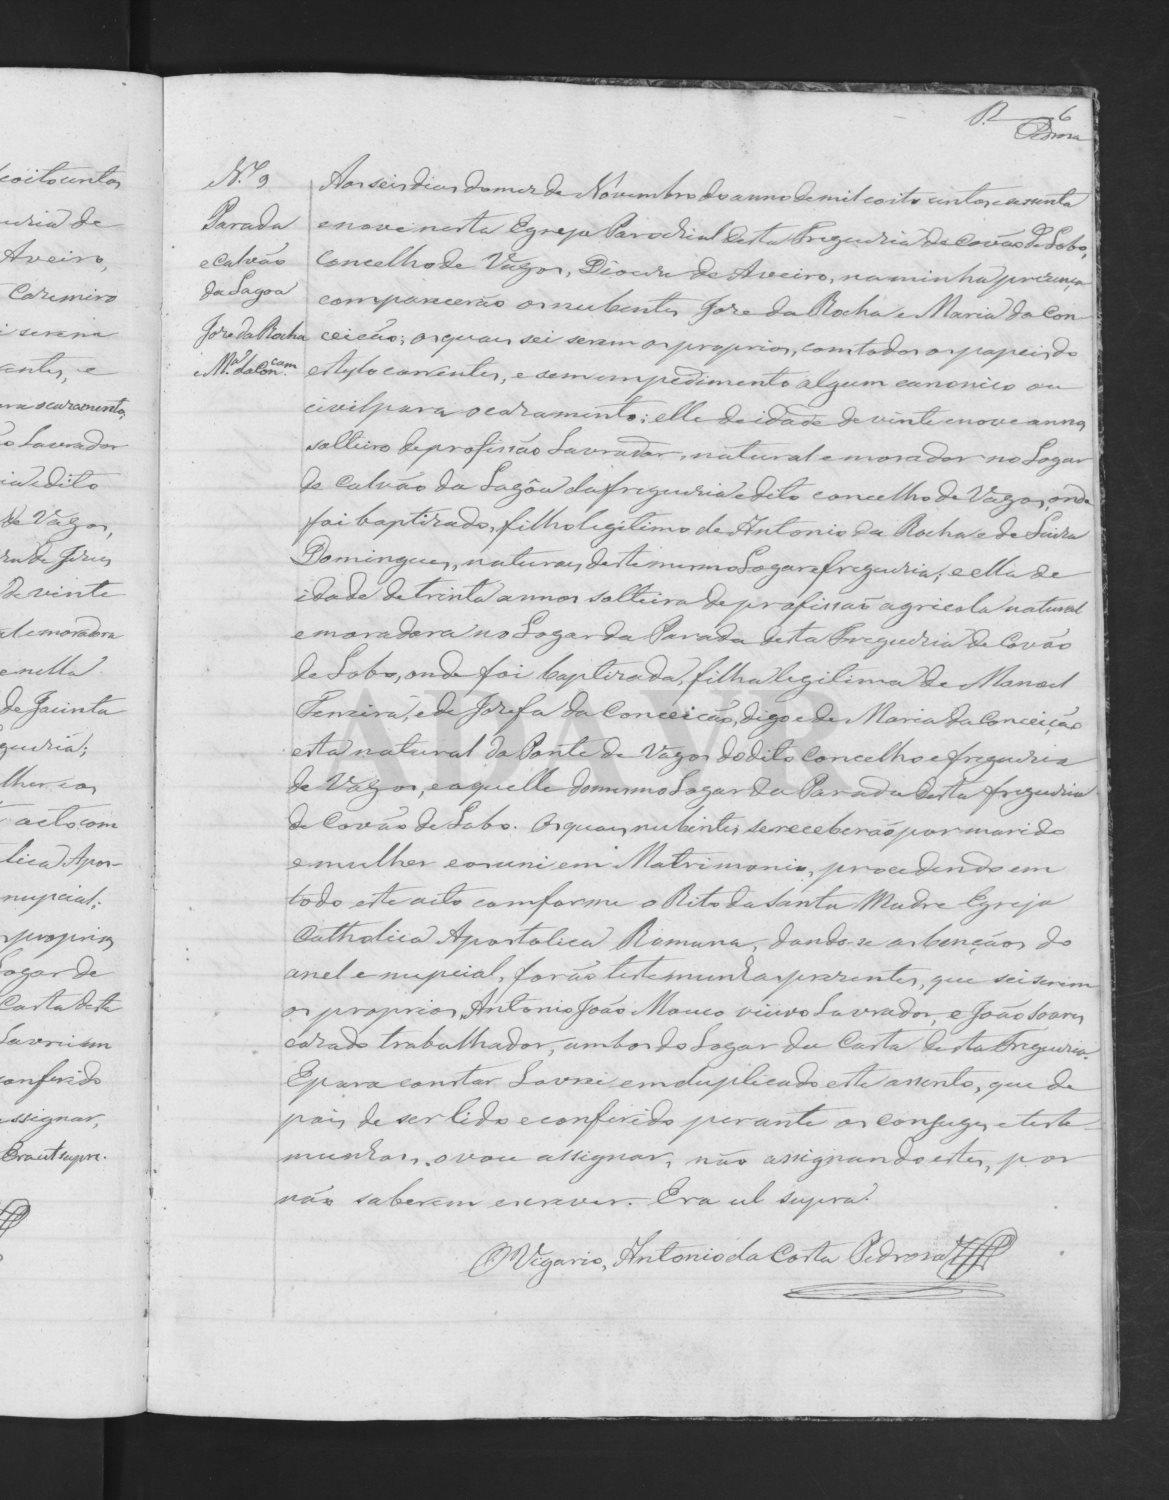 coitocentos
guezia de
Aveiro,
Cazemiro
i serem
entes, e
ara o cazamento,
o Lavrador
ia e dito
de Vagos,
de Jesus
de vinte
al e moradora
e nella
de Jacinta
guezia;
lher, e os
acto com
lica Apos-
nupcial;
proprios,
Logar de
Costa desta
Lavrei em
conferido
assignar,
Era ut supra.
6
Pedroza
N.º 9
Parada
e Calvão
da Lagoa
Joze da Rocha
e M.ª da Con.cam
Aos seis dias do mez de Novembro do anno de mil coito centos e sesenta
e nove nesta Egreja Parochial desta Freguezia de Covão de Lobo,
Concelho de Vagos, Dioceze de Aveiro, na minha prezença
comparecerão os nubentes Joze da Rocha e Maria da Con-
ceicão; os quaes sei serem os proprios, com todos os papeis do
estylo correntes, e sem impedimento algum canonico ou
civil para o cazamento; elle de idade de vinte e nove annos,
solteiro de profissão Lavrador, natural e morador no Logar
de Calvão da Lagôa da freguezia e dito concelho de Vagos, onde
foi baptizado, filho legitimo de Antonio da Rocha e de Luiza
Domingues, naturaes deste mesmo Logar e freguezia; e ella de
idade de trinta annos solteira de profissão agricola natural
e moradora no Logar da Parada desta Freguezia de Covão
de Lobo, onde foi baptizada, filha legitima de Manoel
Ferreira, e de Jozefa da Conceicão, digo e de Maria da Conceição
esta natural da Ponte de Vagos do dito Concelho e freguezia
de Vagos, e aquelle do mesmo Logar da Parada desta freguezia
de Covão de Lobo. Os quaes nubentes se receberão por marido
e mulher e os uni em Matrimonio, procedendo em
todo este acto comforme o Rito da Santa Madre Egreja
Catholica Apostolica Romana, dando-se as bençãos do
anel e nupcial, forão testemunhas prezentes, que sei serem
os proprios, Antonio João Mouco viuvo Lavrador, e João Soares
cazado trabalhador, ambos do Logar da Costa desta Freguezia.
E para constar Lavrei em duplicado este assento, que de
pois de ser lido e conferido perante os conjuges e teste
munhas, o vou assignar, não assignando estes, por
não saberem escrever. Era ut supra.
O Vigario, Antonio da Costa Pedroza
ADAVR